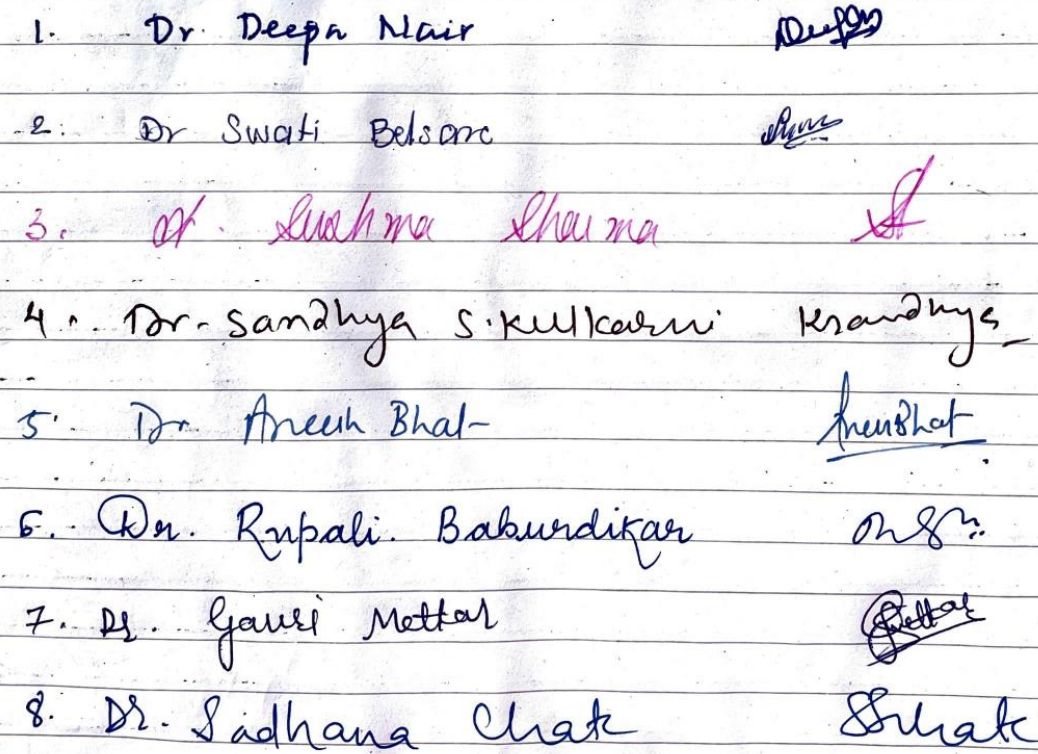 1. Dr Deepa Nair
2. Dr Swati Belsare
3. Dr. Sushma Sharma
4. Dr. Sandhya S. Kulkarni Ksandhya
5. Dr Aneesh Bhat AneeBhat
6. Dr. Rupali. Baburdikar
7. Dr. Gauri Mettar
8. Dr. Sadhana Chate